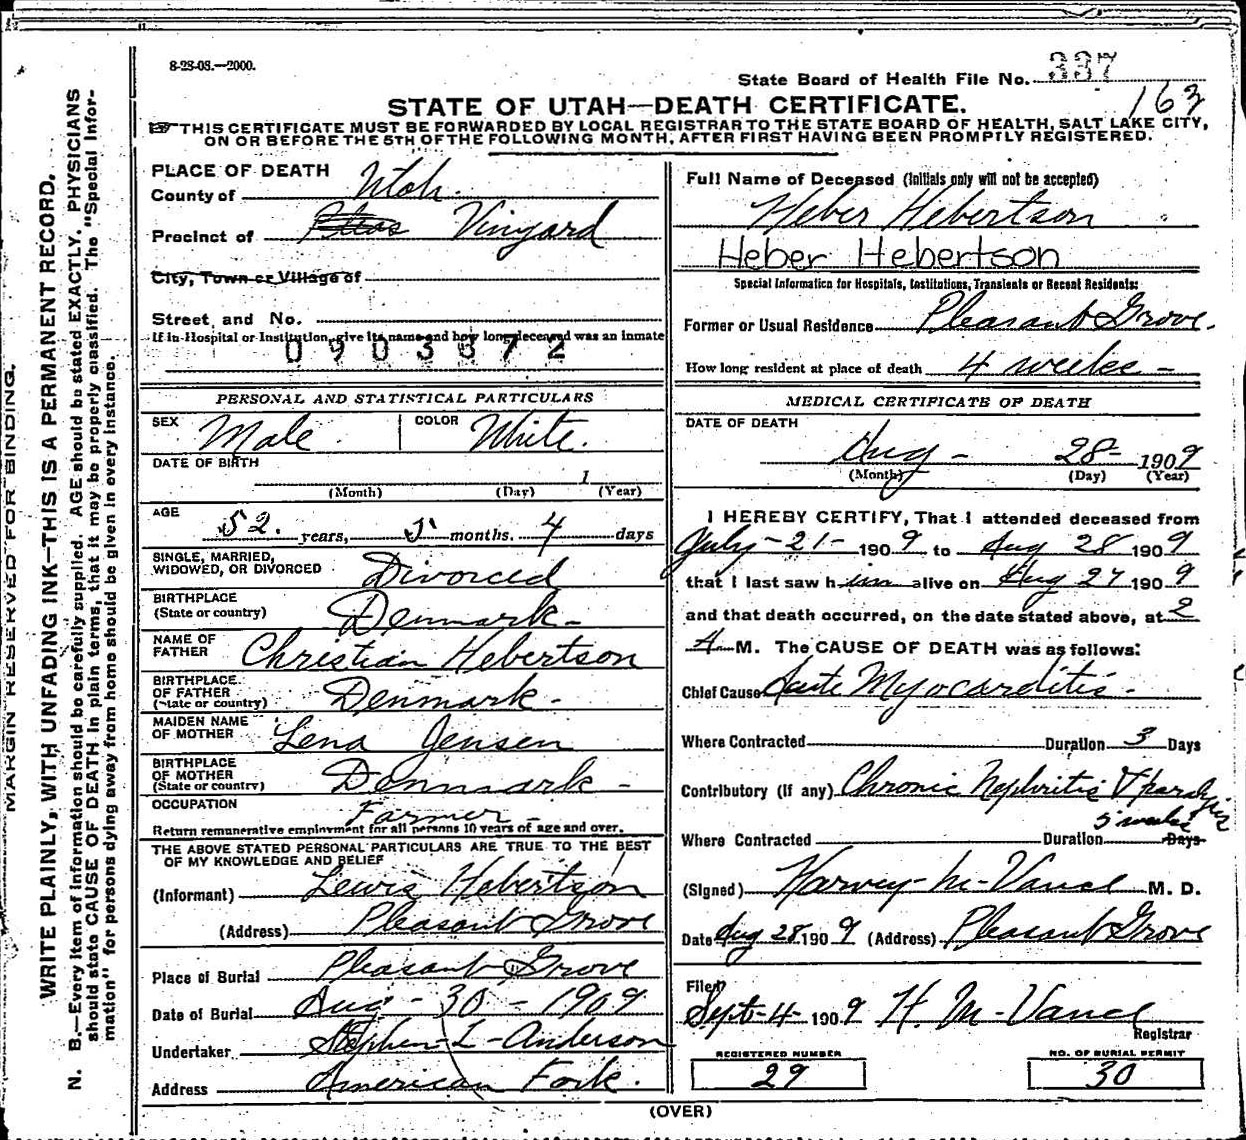 8-28-08.—2000.
State Board of Health File No. 337
163
STATE OF UTAH—DEATH CERTIFICATE.
THIS CERTIFICATE MUST BE FORWARDED BY LOCAL REGISTRAR TO THE STATE BOARD OF HEALTH, SALT LAKE CITY,
ON OR BEFORE THE 5TH OF THE FOLLOWING MONTH, AFTER FIRST HAVING BEEN PROMPTLY REGISTERED.
MARGIN RESERVED FOR BINDING.
WRITE PLAINLY, WITH UNFADING INK—THIS IS A PERMANENT RECORD.
N. B.—Every item of information should be carefully supplied. AGE should be stated EXACTLY. PHYSICIANS
should state CAUSE OF DEATH in plain terms, that it may be properly classified. The "Special Infor-
mation" for persons dying away from home should be given in every instance.
PLACE OF DEATH
County of Utah.
Precinct of Vinyard
City, Town or Village of
Street, and No.
If in Hospital or Institution, give its name and how long deceased was an inmate
0903672
PERSONAL AND STATISTICAL PARTICULARS
SEX Male. COLOR White.
DATE OF BIRTH
1
(Month) (Day) (Year)
AGE
52. years, 5 months. 4 days
SINGLE, MARRIED,
WIDOWED, OR DIVORCED Divorced
BIRTHPLACE
(State or country) Denmark-
NAME OF
FATHER Christian Hebertson
BIRTHPLACE
OF FATHER
(State or country) Denmark-
MAIDEN NAME
OF MOTHER Lena Jensen
BIRTHPLACE
OF MOTHER
(State or country) Denmark-
OCCUPATION Farmer-
Return remunerative employment for all persons 10 years of age and over.
THE ABOVE STATED PERSONAL PARTICULARS ARE TRUE TO THE BEST
OF MY KNOWLEDGE AND BELIEF
(Informant) Lewis Hebertson
(Address) Pleasant Grove
Place of Burial Pleasant Grove
Date of Burial Aug-30-1909.
Undertaker Stephen-L-Anderson
Address American Fork.
Full Name of Deceased (Initials only will not be accepted)
Heber Hebertson
Heber Hebertson
Special Information for Hospitals, Institutions, Transients or Recent Residents:
Former or Usual Residence Pleasant Grove.
How long resident at place of death 4 weeks-
MEDICAL CERTIFICATE OF DEATH
DATE OF DEATH
Aug- 28- 1909
(Month) (Day) (Year)
I HEREBY CERTIFY, That I attended deceased from
July-21-1909 to Aug 28 1909
that I last saw him alive on Aug 27 1909
and that death occurred, on the date stated above, at 2
A M. The CAUSE OF DEATH was as follows:
Chief Cause Acute Myocarditis-
Where Contracted Duration 3 Days
Contributory (If any) Chronic Nephritis & paralysis
5 weeks
Where Contracted Duration Days
(Signed) Harvey-M-Vance M. D.
Date Aug 28 1909 (Address) Pleasant Grove
Filed
Sept-4-1909 H. M-Vance
Registrar
REGISTERED NUMBER
29
NO. OF BURIAL PERMIT
30
(OVER)